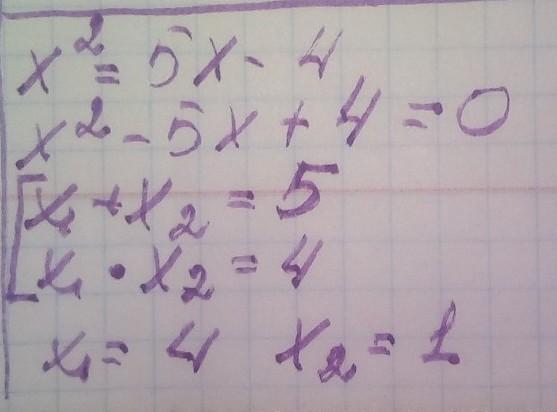 x² = 5x - 4
x² - 5x + 4 = 0
[x₁ + x₂ = 5
x₁ • x₂ = 4
x₁ = 4 x₂ = 1